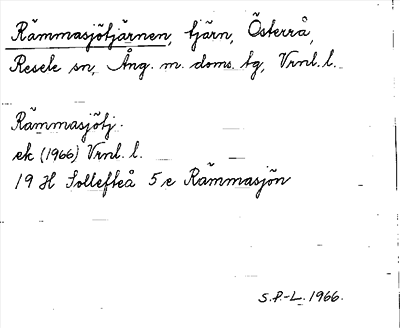 Rämmasjötjärnen, tjärn, Österrå,
Resele sn, Ång. m. doms. tg, Vrnl. l.
Rämmasjötj.
ek (1966) Vrnl. l.
19 H Sollefteå 5 e Rämmasjön
S.P.-L. 1966.